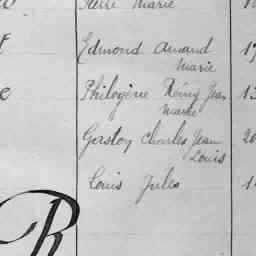 Pierre Marie
Edmond Amand 17
Marie
e Philogène Rémy Jean 13
Marie
Gaston Charles Jean 20
Louis
Louis Jules
R